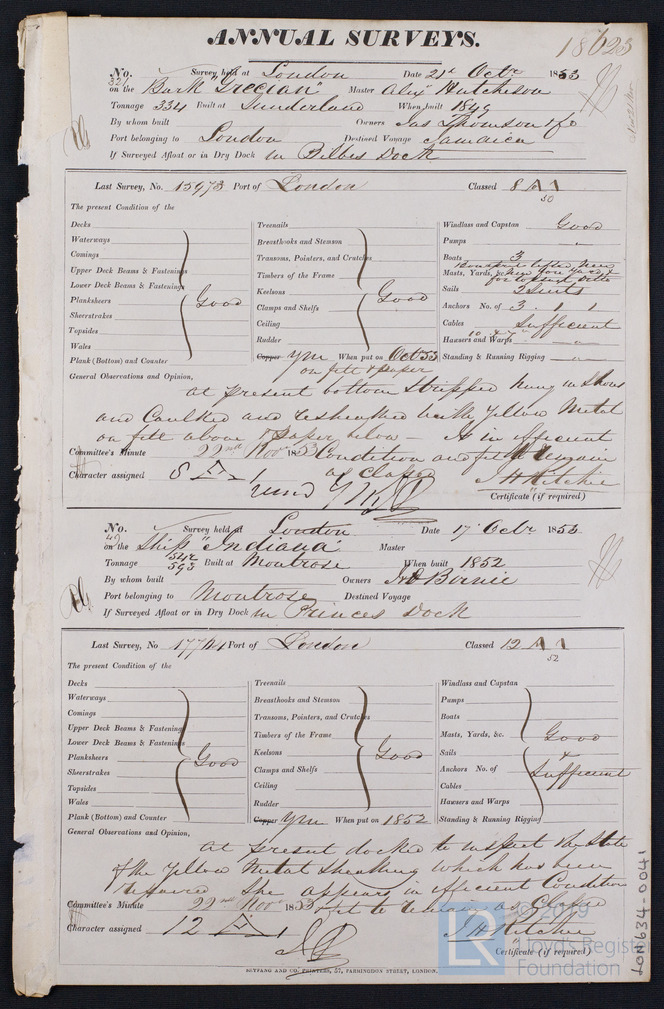 ANNUAL SURVEYS.
18623
No. 321 Survey held at London Date 21st Octr 1853
on the Bark "Grecian" Master Alexr Hutcheson
Tonnage 334 Built at Sunderland When built 1849
By whom built Owners Jas Thomson & Co
Port belonging to London Destined Voyage Jamaica
If Surveyed Afloat or in Dry Dock in Bilbes Dock
Last Survey, No. 15973 Port of London Classed 8 A 1
50
The present Condition of the
Decks
Waterways
Comings
Upper Deck Beams & Fastenings
Lower Deck Beams & Fastenings
Planksheers Good
Sheerstrakes
Topsides
Wales
Plank (Bottom) and Counter
Treenails
Breasthooks and Stemson
Transoms, Pointers, and Crutches
Timbers of the Frame
Keelsons Good
Clamps and Shelfs
Ceiling
Rudder
Copper YM When put on Octr 53
on felt & paper
Windlass and Capstan Good
Pumps "
Boats 3
Masts, Yards, &c.
Sails 2 Suits
Anchors No. of 3 1 1
Cables Sufficient
Hawsers and Warps "
Standing & Running Rigging "
General Observations and Opinion,
at present bottom stripped hung in Shores
and Caulked and resheathed with Yellow Metal
on felt above & paper below - is in efficient
Committee's Minute 22nd Novr 1853 Condition and fit to remain
Character assigned 8 A 1 as Classe
J H Ritchie
Certificate (if required)
No. 40 Survey held at London Date 17 Octr 1853
on the Ship "Indiana" Master
542
Tonnage 593 Built at Montrose When built 1852
By whom built Owners Birnie
Port belonging to Montrose Destined Voyage
If Surveyed Afloat or in Dry Dock in Princes Dock
Last Survey, No 17741 Port of London Classed 12 A 1
52
The present Condition of the
Decks
Waterways
Comings
Upper Deck Beams & Fastenings
Lower Deck Beams & Fastenings
Planksheers Good
Sheerstrakes
Topsides
Wales
Plank (Bottom) and Counter
Treenails
Breasthooks and Stemson
Transoms, Pointers, and Crutches
Timbers of the Frame
Keelsons Good
Clamps and Shelfs
Ceiling
Rudder
Copper YM When put on 1852
Windlass and Capstan
Pumps
Boats
Masts, Yards, &c. Good
Sails &
Anchors No. of Sufficient
Cables
Hawsers and Warps
Standing & Running Rigging
General Observations and Opinion,
at present docked to inspect the state
of the Yellow Metal Sheathing which has been
repaired She appears in efficient Condition
Committee's Minute 22nd Novr 1853 fit to remain as Classe
Character assigned 12 A 1
J H Ritchie
Certificate (if required)
SEYFANG AND CO. PRINTERS, 57, FARRINGDON STREET, LONDON.
LON634-0041
LR
© 2019
Lloyd's Register
Foundation